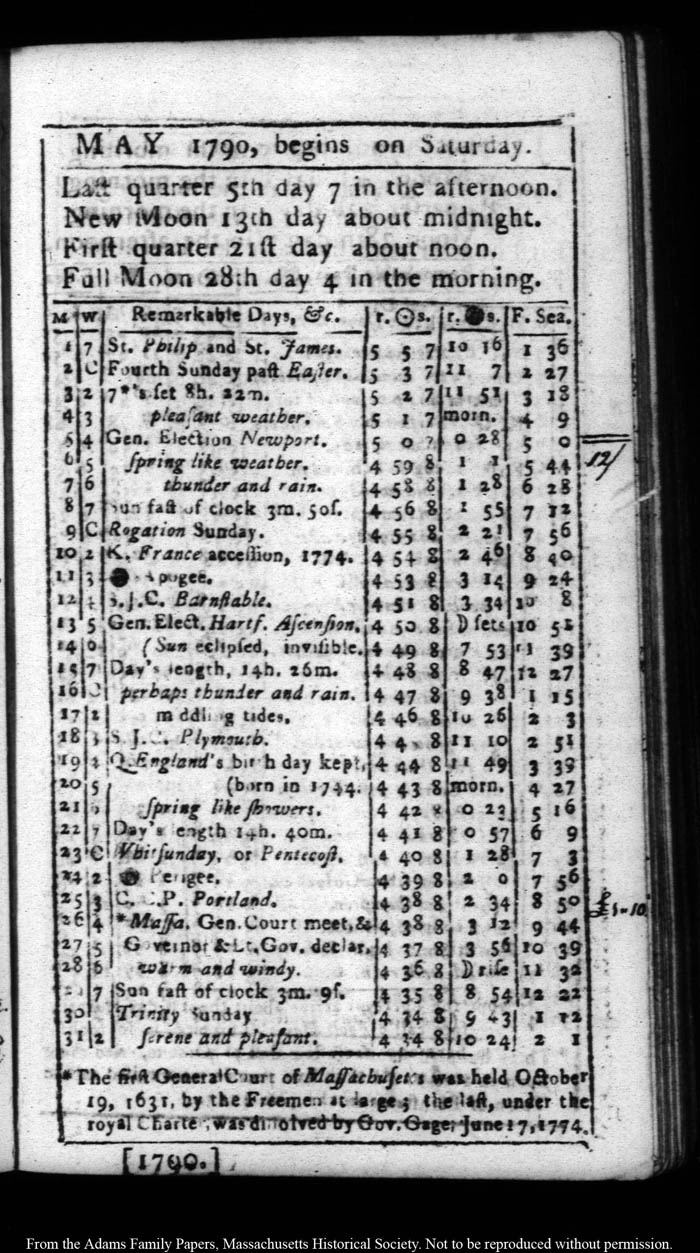 MAY 1790, begins on Saturday.
Laſt quarter 5th day 7 in the afternoon.
New Moon 13th day about midnight.
Firſt quarter 21ſt day about noon.
Full Moon 28th day 4 in the morning.
M W Remarkable Days, &c. r. ☉ s. r. ● s. F. Sea.
1 7 St. Philip and St. James. 5 5 7 10 16 1 36
2 C Fourth Sunday paſt Eaſter. 5 3 7 11 7 2 27
3 2 7*'s ſet 8h. 22m. 5 2 7 11 51 3 18
4 3 pleaſant weather. 5 1 7 morn. 4 9
5 4 Gen. Election Newport. 5 0 7 0 28 5 0
6 5 ſpring like weather. 4 59 8 1 1 5 44
12/
7 6 thunder and rain. 4 58 8 1 28 6 28
8 7 Sun faſt of clock 3m. 50ſ. 4 56 8 1 55 7 12
9 C Rogation Sunday. 4 55 8 2 21 7 56
10 2 K. France acceſſion, 1774. 4 54 8 2 46 8 40
11 3 ● Apogee. 4 53 8 3 14 9 24
12 4 S.J.C. Barnſtable. 4 51 8 3 34 10 8
13 5 Gen. Elect. Hartf. Aſcenſion. 4 50 8 D ſets 10 51
14 6 (Sun eclipſed, inviſible. 4 49 8 7 53 11 39
15 7 Day's length, 14h. 26m. 4 48 8 8 47 12 27
16 C perhaps thunder and rain. 4 47 8 9 38 1 15
17 2 middling tides. 4 46 8 10 26 2 3
18 3 S.J.C. Plymouth. 4 8 11 10 2 51
19 4 Q. England's birthday kept, 4 44 8 11 49 3 39
20 5 (born in 1744. 4 43 8 morn. 4 27
21 6 ſpring like ſhowers. 4 42 8 0 23 5 16
22 7 Day's length 14h. 40m. 4 41 8 0 57 6 9
23 C Whitſunday, or Pentecoſt. 4 40 8 1 28 7 3
24 2 ● Perigee. 4 39 8 2 0 7 56
25 3 C.C.P. Portland. 4 38 8 2 34 8 50
26 4 *Maſſa. Gen. Court meet, & 4 38 8 3 12 9 44
27 5 Governor & Lt. Gov. declar. 4 37 8 3 56 10 39
28 6 warm and windy. 4 36 8 D riſe 11 32
7 Sun faſt of clock 3m. 9ſ. 4 35 8 8 54 12 22
30 C Trinity Sunday 4 34 8 9 43 1 12
31 2 ſerene and pleaſant. 4 34 8 10 24 2 1
*The firſt General Court of Maſſachuſetts was held October
19, 1631, by the Freemen at large; the laſt, under the
royal Charter, was diſſolved by Gov. Gage, June 17, 1774.
[1790.]
From the Adams Family Papers, Massachusetts Historical Society. Not to be reproduced without permission.